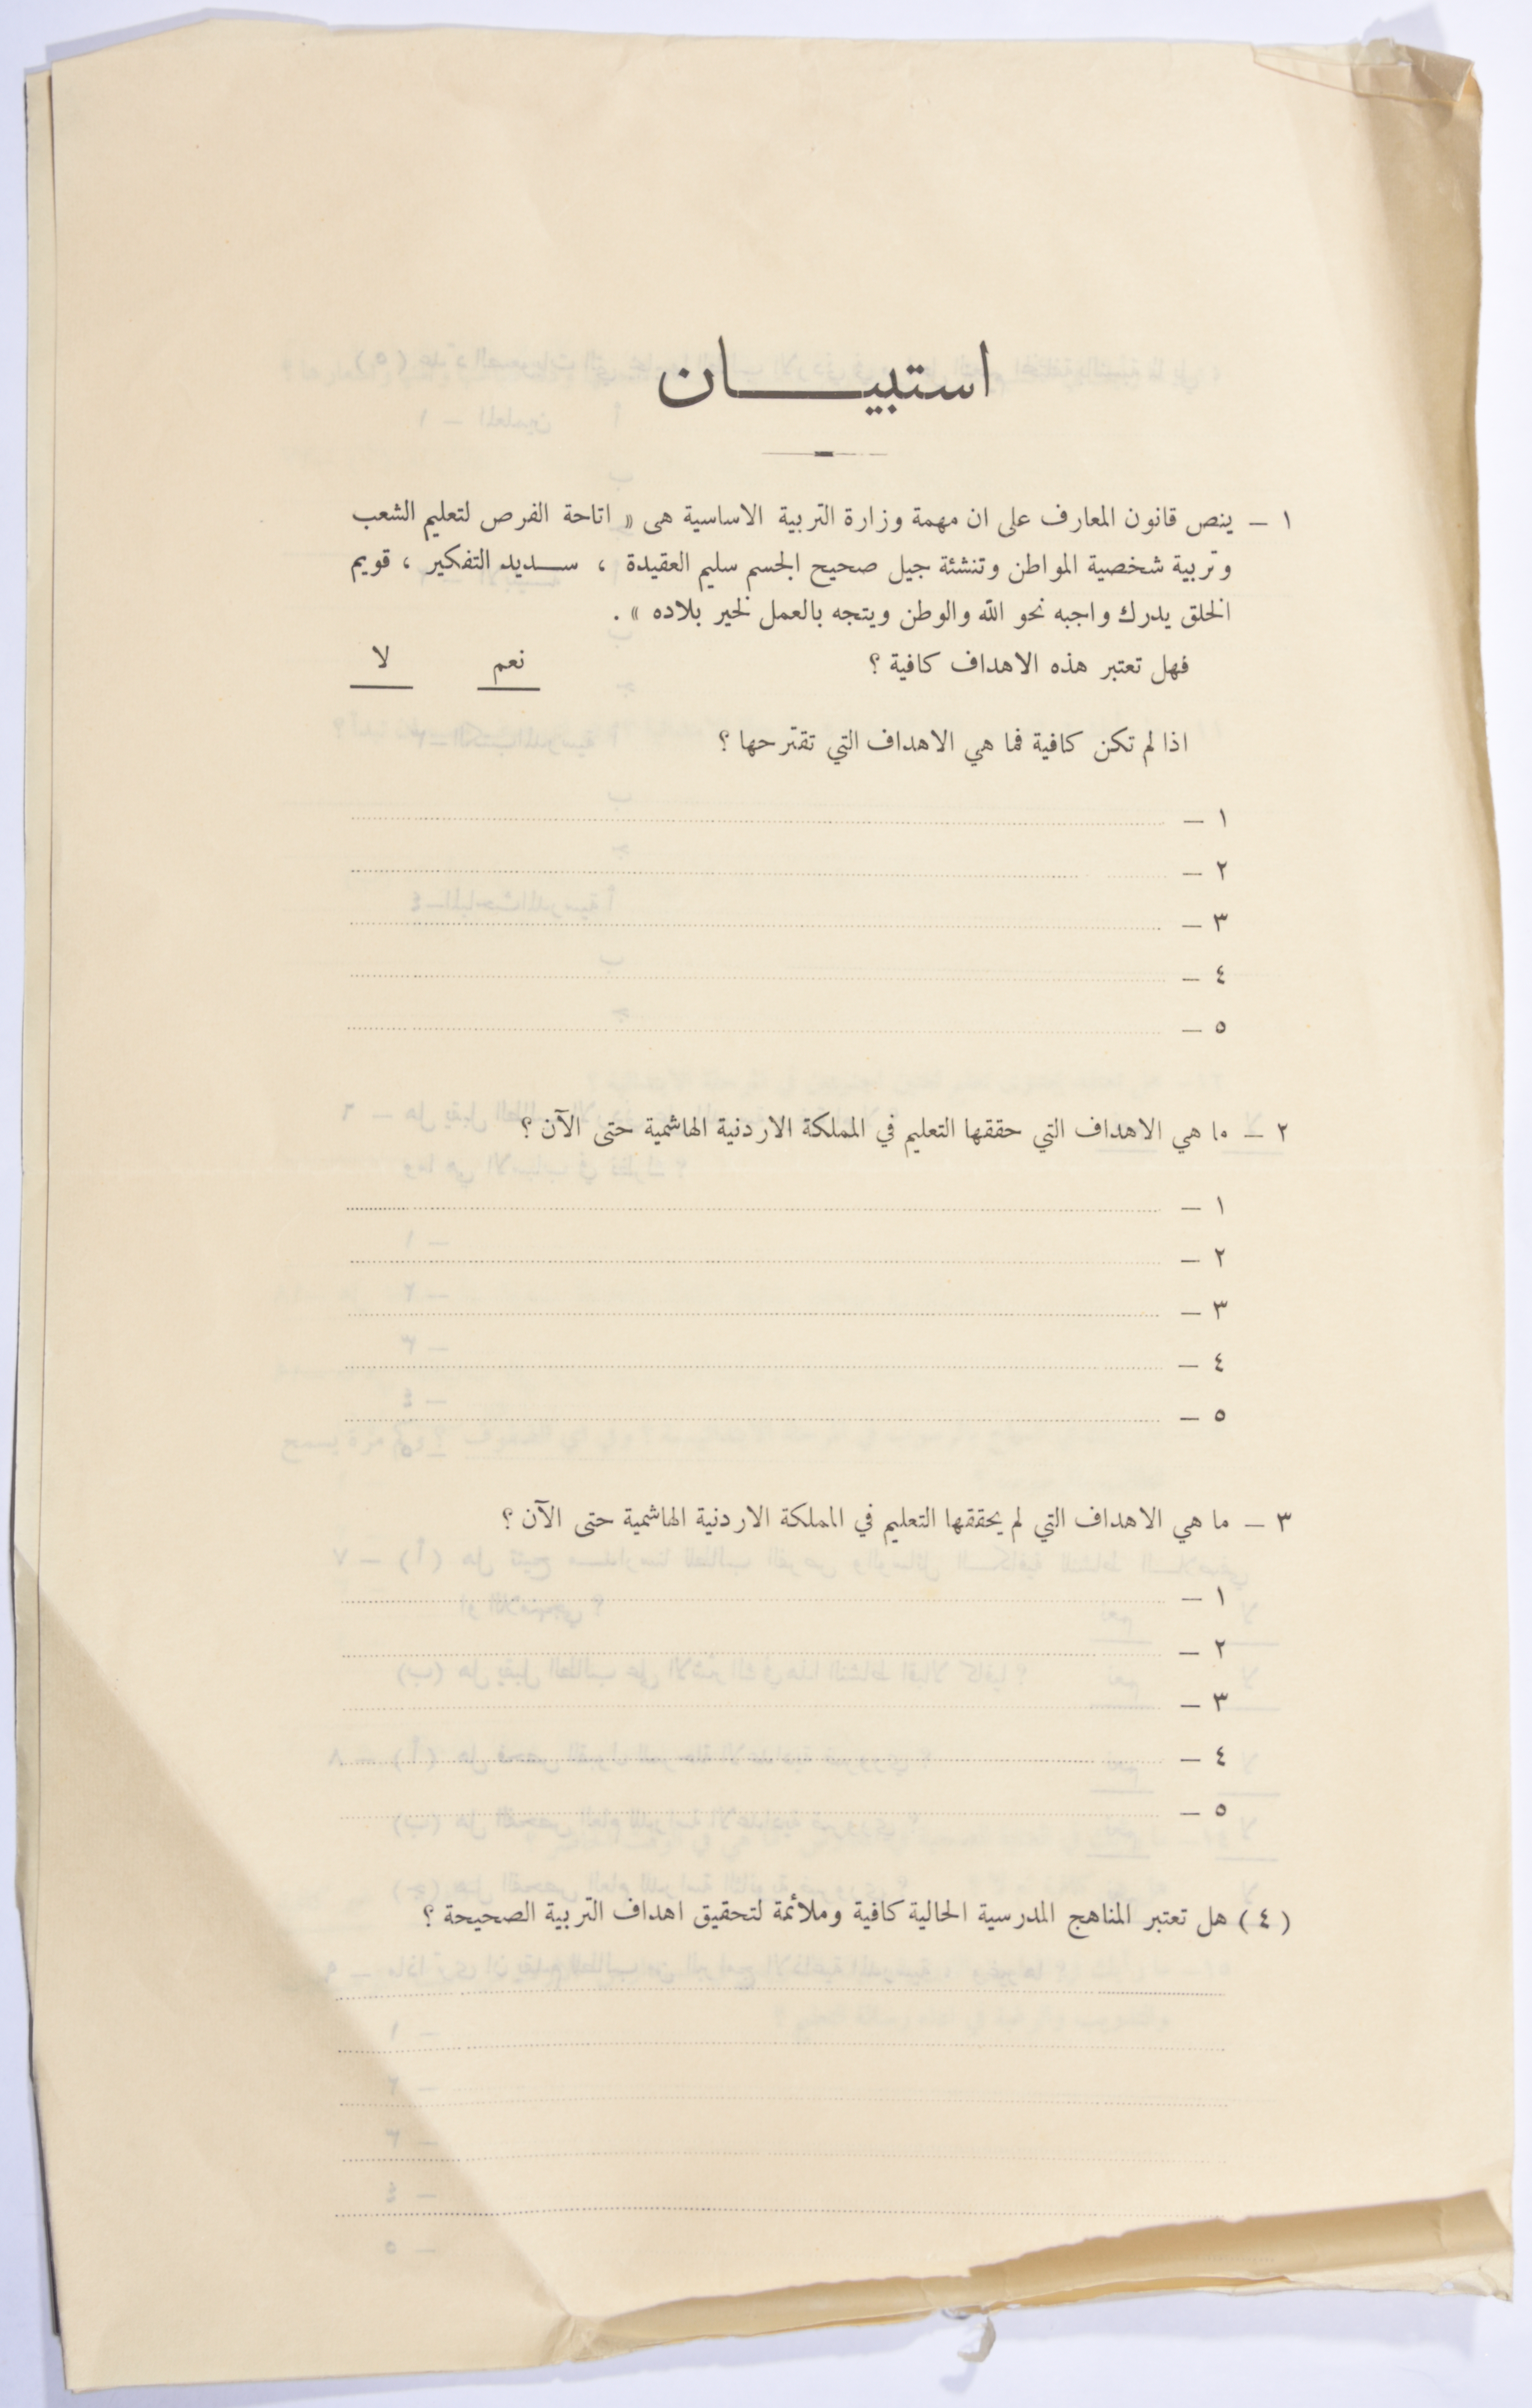 استبيـــــان
١ – ينص قانون المعارف على ان مهمة وزارة التربية الاساسية هى « اتاحة الفرص لتعليم الشعب
وتربية شخصية المواطن وتنشئة جيل صحيح الجسم سليم العقيدة ، ســديد التفكير ، قويم
الخلق يدرك واجبه نحو الله والوطن ويتجه بالعمل لخير بلاده » .
فهل تعتبر هذه الاهداف كافية ؟ نعم لا
اذا لم تكن كافية فما هي الاهداف التي تقترحها ؟
١ –
٢ –
٣ –
٤ –
٥ –
٢ – ما هي الاهداف التي حققها التعليم في المملكة الاردنية الهاشمية حتى الآن ؟
١ –
٢ –
٣ –
٤ –
٥ –
٣ – ما هي الاهداف التي لم يحققها التعليم في المملكة الاردنية الهاشمية حتى الآن ؟
١ –
٢ –
٣ –
٤ –
٥ –
( ٤ ) هل تعتبر المناهج المدرسية الحالية كافية وملائمة لتحقيق اهداف التربية الصحيحة ؟